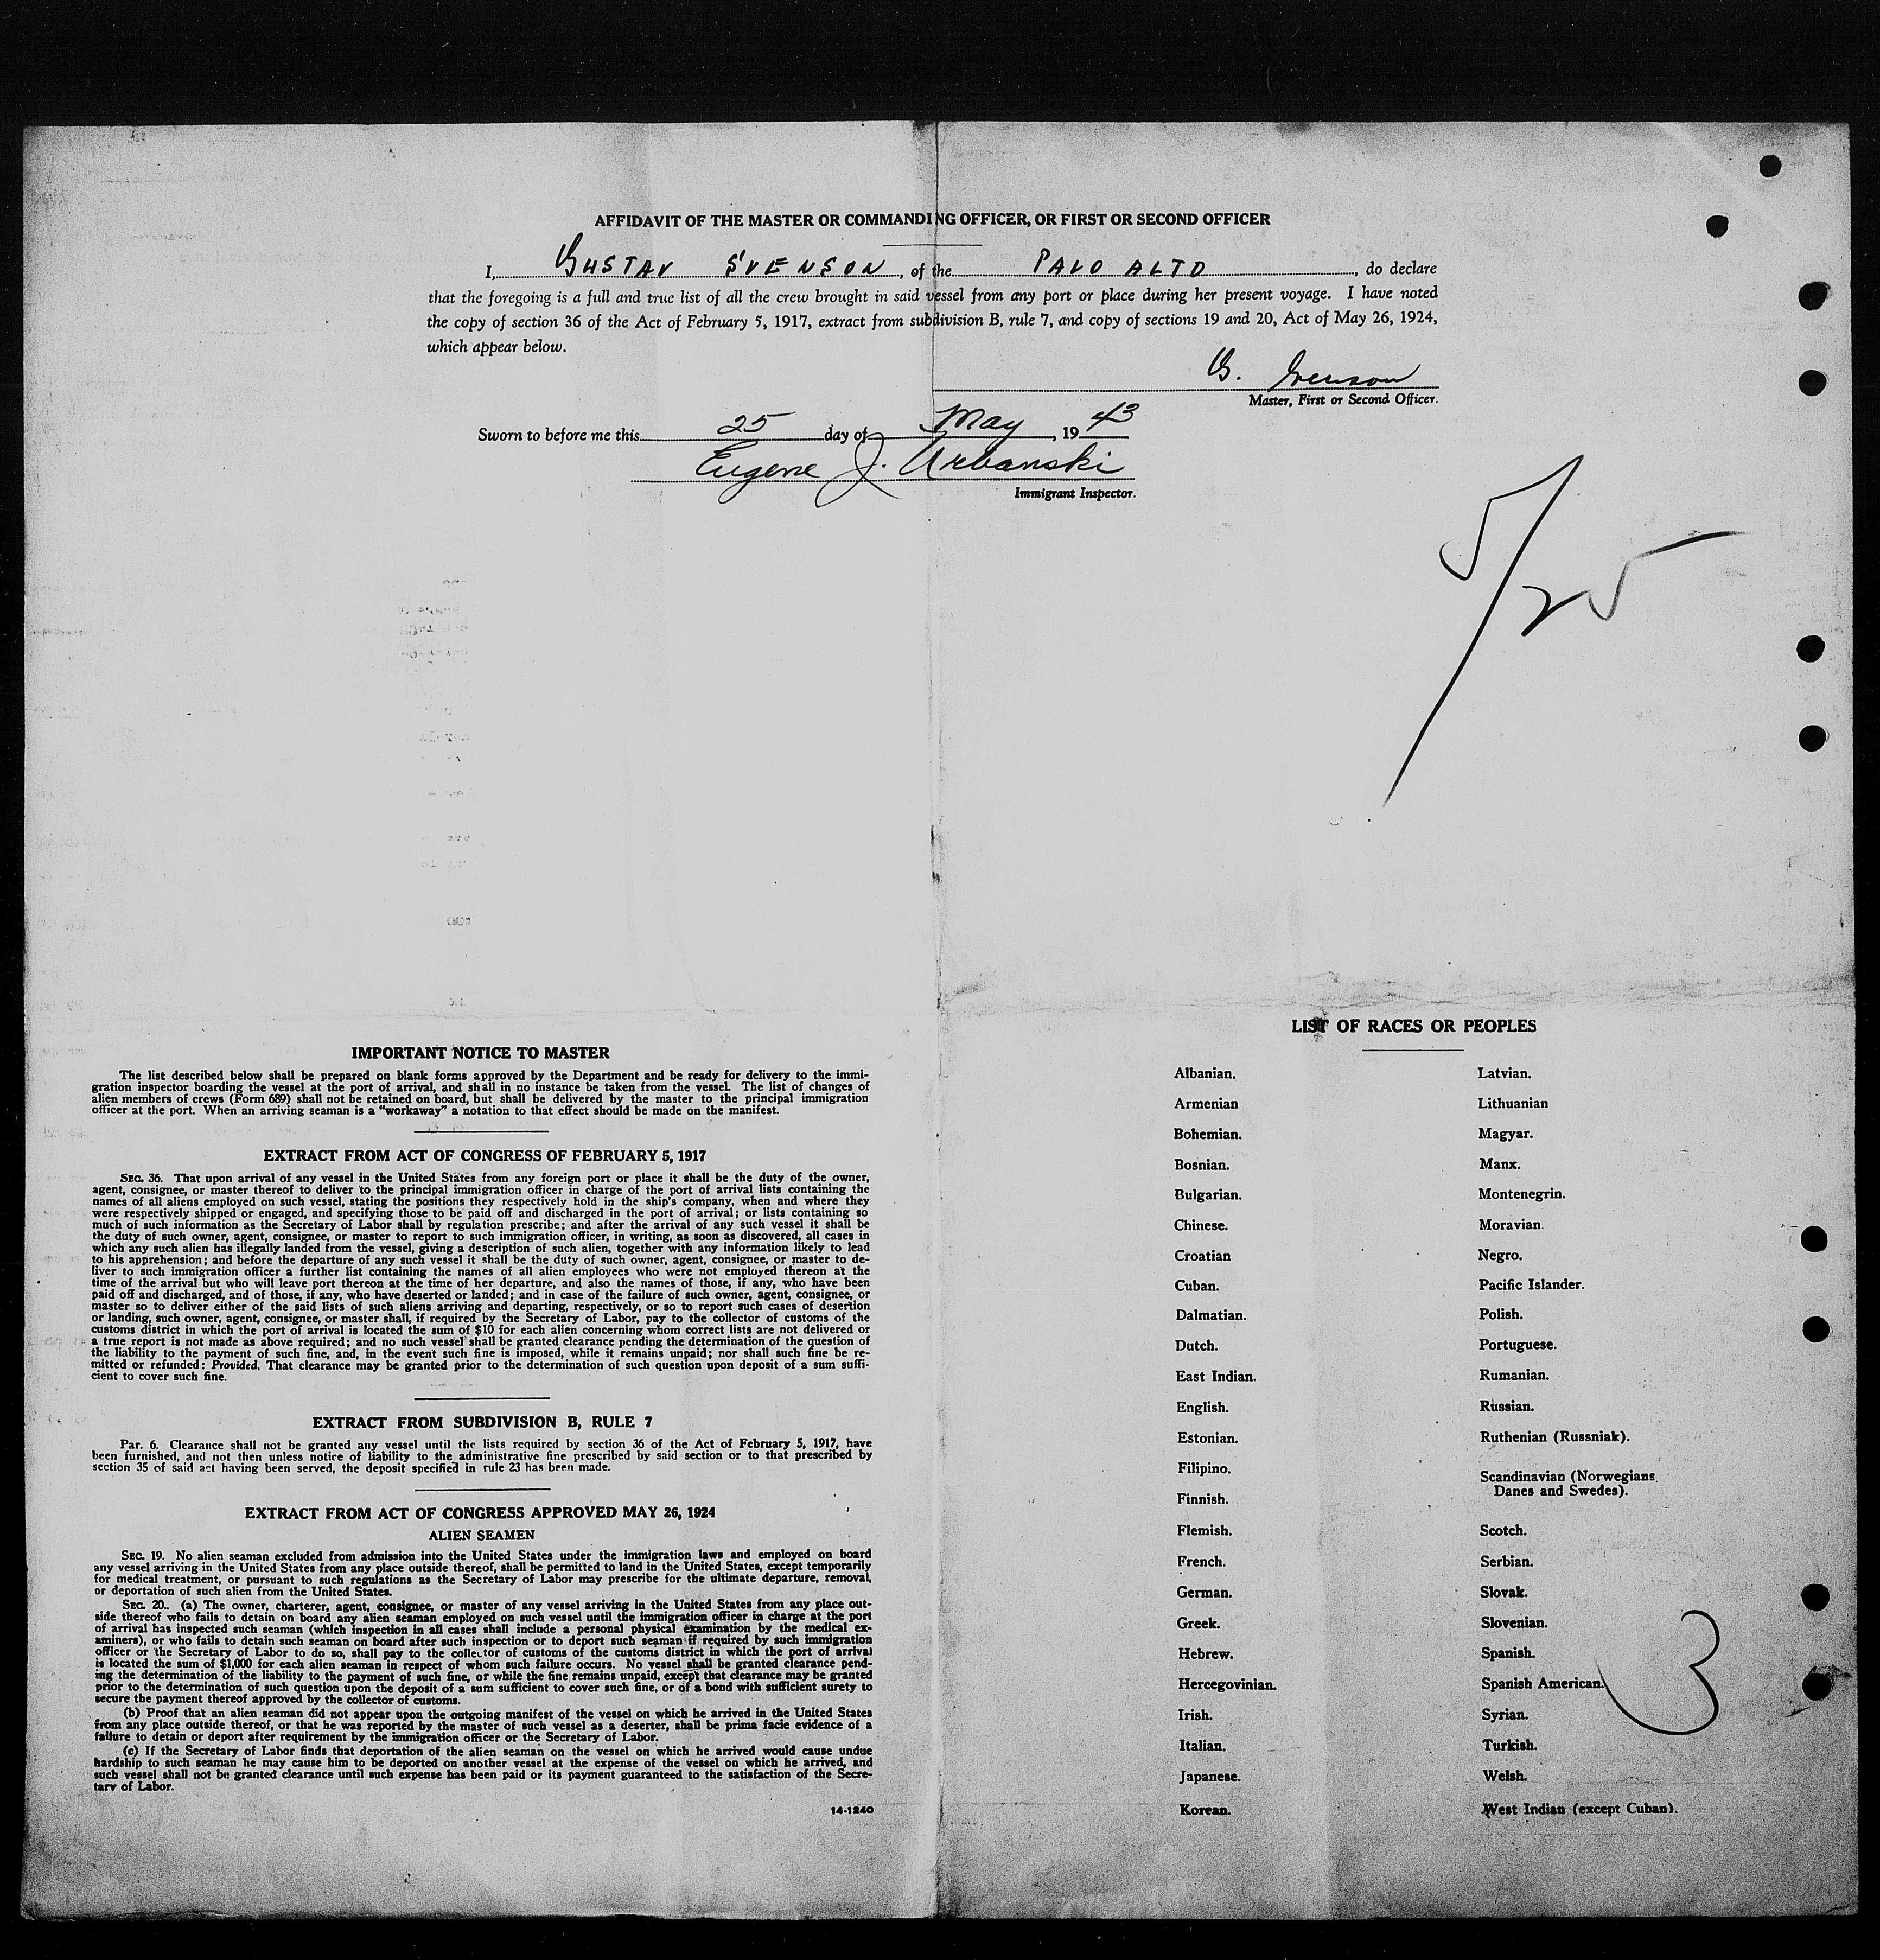 AFFIDAVIT OF THE MASTER OR COMMANDING OFFICER, OR FIRST OR SECOND OFFICER
I, GUSTAV SVENSON, of the PALO ALTO, do declare
that the foregoing is a full and true list of all the crew brought in said vessel from any port or place during her present voyage. I have noted
the copy of section 36 of the Act of February 5, 1917, extract from subdivision B, rule 7, and copy of sections 19 and 20, Act of May 26, 1924,
which appear below.
G. Svenson
Master, First or Second Officer.
Sworn to before me this 25 day of May, 19 43
Eugene J. Urbanski
Immigrant Inspector.
5/25
IMPORTANT NOTICE TO MASTER
The list described below shall be prepared on blank forms approved by the Department and be ready for delivery to the immi-
gration inspector boarding the vessel at the port of arrival, and shall in no instance be taken from the vessel. The list of changes of
alien members of crews (Form 689) shall not be retained on board, but shall be delivered by the master to the principal immigration
officer at the port. When an arriving seaman is a "workaway" a notation to that effect should be made on the manifest.
EXTRACT FROM ACT OF CONGRESS OF FEBRUARY 5, 1917
SEC. 36. That upon arrival of any vessel in the United States from any foreign port or place it shall be the duty of the owner,
agent, consignee, or master thereof to deliver to the principal immigration officer in charge of the port of arrival lists containing the
names of all aliens employed on such vessel, stating the positions they respectively hold in the ship's company, when and where they
were respectively shipped or engaged, and specifying those to be paid off and discharged in the port of arrival; or lists containing so
much of such information as the Secretary of Labor shall by regulation prescribe; and after the arrival of any such vessel it shall be
the duty of such owner, agent, consignee, or master to report to such immigration officer, in writing, as soon as discovered, all cases in
which any such alien has illegally landed from the vessel, giving a description of such alien, together with any information likely to lead
to his apprehension; and before the departure of any such vessel it shall be the duty of such owner, agent, consignee, or master to de-
liver to such immigration officer a further list containing the names of all alien employees who were not employed thereon at the
time of the arrival but who will leave port thereon at the time of her departure, and also the names of those, if any, who have been
paid off and discharged, and of those, if any, who have deserted or landed; and in case of the failure of such owner, agent, consignee, or
master so to deliver either of the said lists of such aliens arriving and departing, respectively, or so to report such cases of desertion
or landing, such owner, agent, consignee, or master shall, if required by the Secretary of Labor, pay to the collector of customs of the
customs district in which the port of arrival is located the sum of $10 for each alien concerning whom correct lists are not delivered or
a true report is not made as above required; and no such vessel shall be granted clearance pending the determination of the question of
the liability to the payment of such fine, and, in the event such fine is imposed, while it remains unpaid; nor shall such fine be re-
mitted or refunded: Provided, That clearance may be granted prior to the determination of such question upon deposit of a sum suffi-
cient to cover such fine.
EXTRACT FROM SUBDIVISION B, RULE 7
Par. 6. Clearance shall not be granted any vessel until the lists required by section 36 of the Act of February 5, 1917, have
been furnished, and not then unless notice of liability to the administrative fine prescribed by said section or to that prescribed by
section 35 of said act having been served, the deposit specified in rule 23 has been made.
EXTRACT FROM ACT OF CONGRESS APPROVED MAY 26, 1924
ALIEN SEAMEN
SEC. 19. No alien seaman excluded from admission into the United States under the immigration laws and employed on board
any vessel arriving in the United States from any place outside thereof, shall be permitted to land in the United States, except temporarily
for medical treatment, or pursuant to such regulations as the Secretary of Labor may prescribe for the ultimate departure, removal,
or deportation of such alien from the United States.
SEC. 20. (a) The owner, charterer, agent, consignee, or master of any vessel arriving in the United States from any place out-
side thereof who fails to detain on board any alien seaman employed on such vessel until the immigration officer in charge at the port
of arrival has inspected such seaman (which inspection in all cases shall include a personal physical examination by the medical ex-
aminers), or who fails to detain such seaman on board after such inspection or to deport such seaman if required by such immigration
officer or the Secretary of Labor to do so, shall pay to the collector of customs of the customs district in which the port of arrival
is located the sum of $1,000 for each alien seaman in respect of whom such failure occurs. No vessel shall be granted clearance pend-
ing the determination of the liability to the payment of such fine, or while the fine remains unpaid, except that clearance may be granted
prior to the determination of such question upon the deposit of a sum sufficient to cover such fine, or of a bond with sufficient surety to
secure the payment thereof approved by the collector of customs.
(b) Proof that an alien seaman did not appear upon the outgoing manifest of the vessel on which he arrived in the United States
from any place outside thereof, or that he was reported by the master of such vessel as a deserter, shall be prima facie evidence of a
failure to detain or deport after requirement by the immigration officer or the Secretary of Labor.
(c) If the Secretary of Labor finds that deportation of the alien seaman on the vessel on which he arrived would cause undue
hardship to such seaman he may cause him to be deported on another vessel at the expense of the vessel on which he arrived, and
such vessel shall not be granted clearance until such expense has been paid or its payment guaranteed to the satisfaction of the Secre-
tary of Labor.
14-1240
LIST OF RACES OR PEOPLES
Albanian.
Armenian
Bohemian.
Bosnian.
Bulgarian.
Chinese.
Croatian
Cuban.
Dalmatian.
Dutch.
East Indian.
English.
Estonian.
Filipino.
Finnish.
Flemish.
French.
German.
Greek.
Hebrew.
Hercegovinian.
Irish.
Italian.
Japanese.
Korean.
Latvian.
Lithuanian
Magyar.
Manx.
Montenegrin.
Moravian
Negro.
Pacific Islander.
Polish.
Portuguese.
Rumanian.
Russian.
Ruthenian (Russniak).
Scandinavian (Norwegians
Danes and Swedes).
Scotch.
Serbian.
Slovak.
Slovenian.
Spanish.
Spanish American.
Syrian.
Turkish.
Welsh.
West Indian (except Cuban).
3